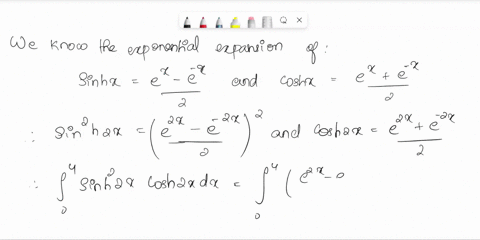 We know the exponential expansion of :
Sinhx = e^x - e^-x / 2 and coshx = e^x + e^-x / 2
∴ Sin²h2x = (e^2x - e^-2x / 2)² and cosh2x = e^2x + e^-2x / 2
∴ ∫₀⁴ Sinh²2x cosh2x dx = ∫₀⁴ ( e^2x - e